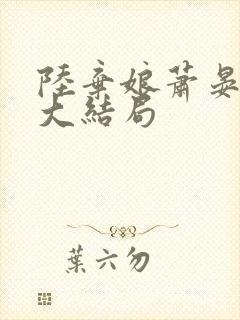 陸棄娘蕭晏
大結局
葉六勿